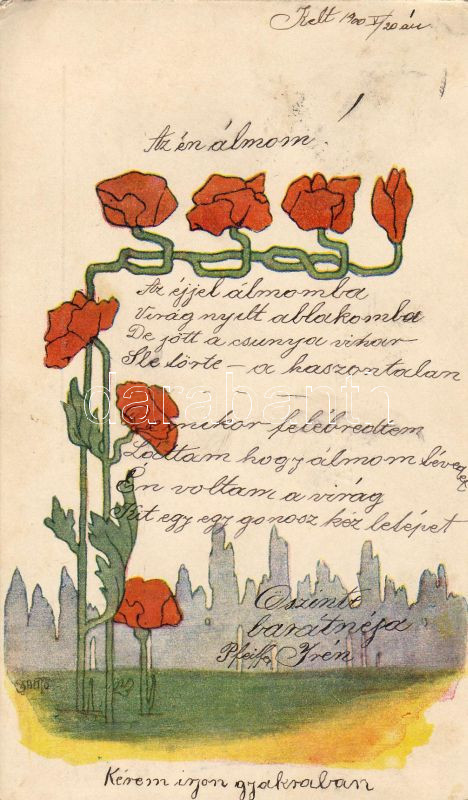 Kelt 1900 V/20 án
Az én álmom!
Az éjjel álmomba
Virág nyilt ablakomba
De jött a csunya vihar
S letörte - a haszontalan
Amikor felébredtem
Láttam hogy álmom téved
Én voltam a virág
Kit egy egy gonosz kéz letépet
Őszinte
barátnéja
Pfeiff Irén
Kérem irjon gyakraban
darabanth